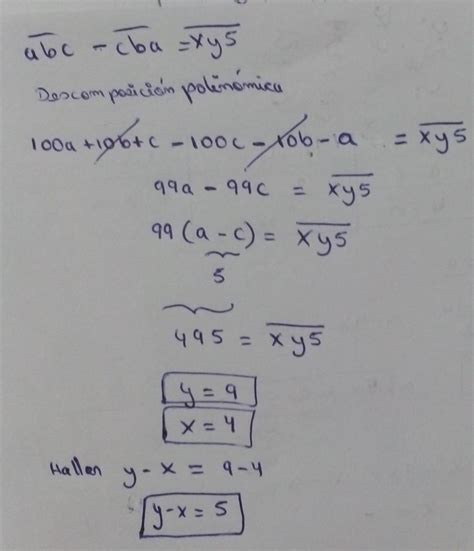 abc - cba = xy5
Descomposición polinómica
100a + 10b + c - 100c - 10b - a = xy5
99a - 99c = xy5
99 (a - c) = xy5
5
495 = xy5
y = 9
x = 4
Hallen y - x = 9 - 4
y - x = 5